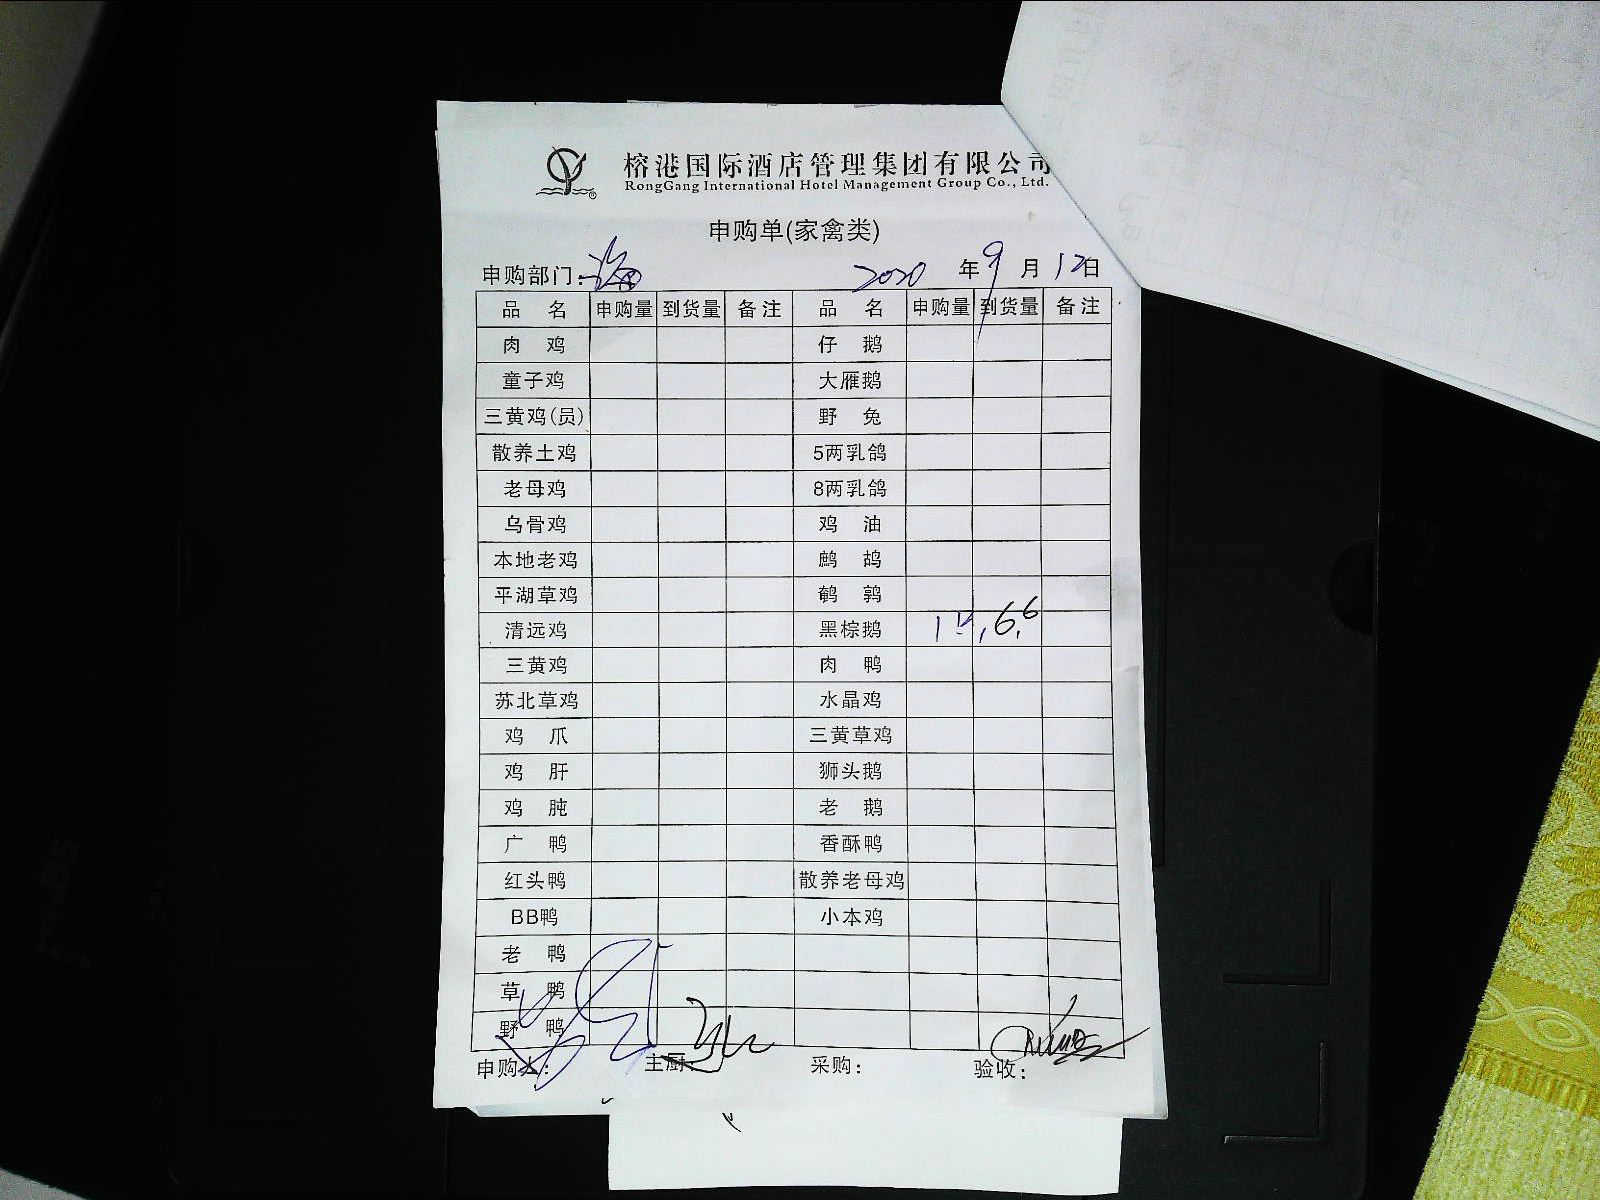 榕港国际酒店管理集团有限公司
RongGang International Hotel Management Group Co., Ltd.
申购单(家禽类)
申购部门: 海 2020 年 9 月 12 日
品 名 申购量 到货量 备注 品 名 申购量 到货量 备注
肉 鸡 仔 鹅
童子鸡 大雁鹅
三黄鸡(员) 野 兔
散养土鸡 5两乳鸽
老母鸡 8两乳鸽
乌骨鸡 鸡 油
本地老鸡 鹧 鸪
平湖草鸡 鹌 鹑
清远鸡 黑棕鹅 6.6
三黄鸡 肉 鸭
苏北草鸡 水晶鸡
鸡 爪 三黄草鸡
鸡 肝 狮头鹅
鸡 肫 老 鹅
广 鸭 香酥鸭
红头鸭 散养老母鸡
BB鸭 小本鸡
老 鸭
草 鸭
野 鸭
申购人: 主厨: 采购: 验收: